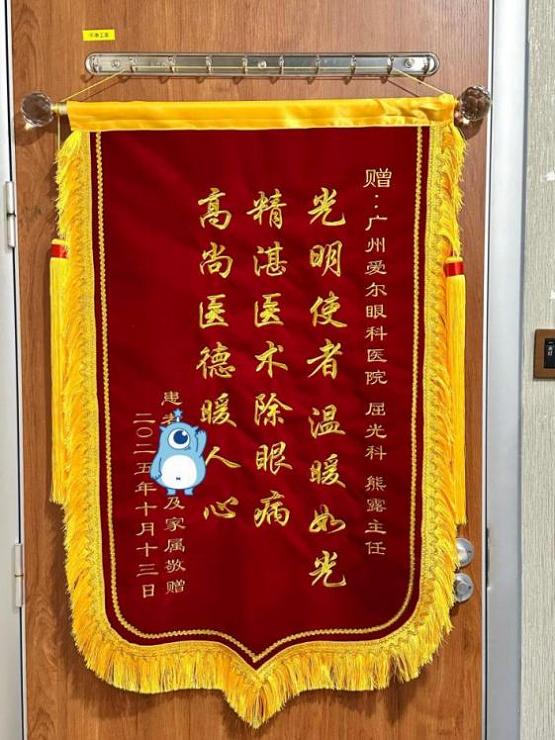 赠：广州爱尔眼科医院 屈光科 熊露主任
光明使者 温暖如光
精湛医术除眼病
高尚医德暖人心
患者 及家属敬赠
二〇二五年十月十三日